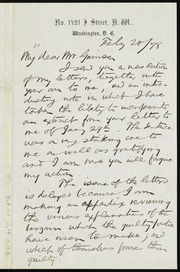 No. 1421 I Street, N.W.
Washington, D.C.
Feby 20/78
My dear Mr. Garrison
I send you a new edition
of my letters, together with
your own to me and an intro-
ductory note in which I have
taken the liberty to incorporate
an extract from your letter to
me of Jany 29th. The notice
was a very striking one to
me as well as gratifying
and I am sure you will forgive
my action.
The issue of the letters
is delayed because I am
making an appendix reviewing
the various explanations of the
bargain which the guilty parties
have seen to make and
which of themselves prove them
guilty.